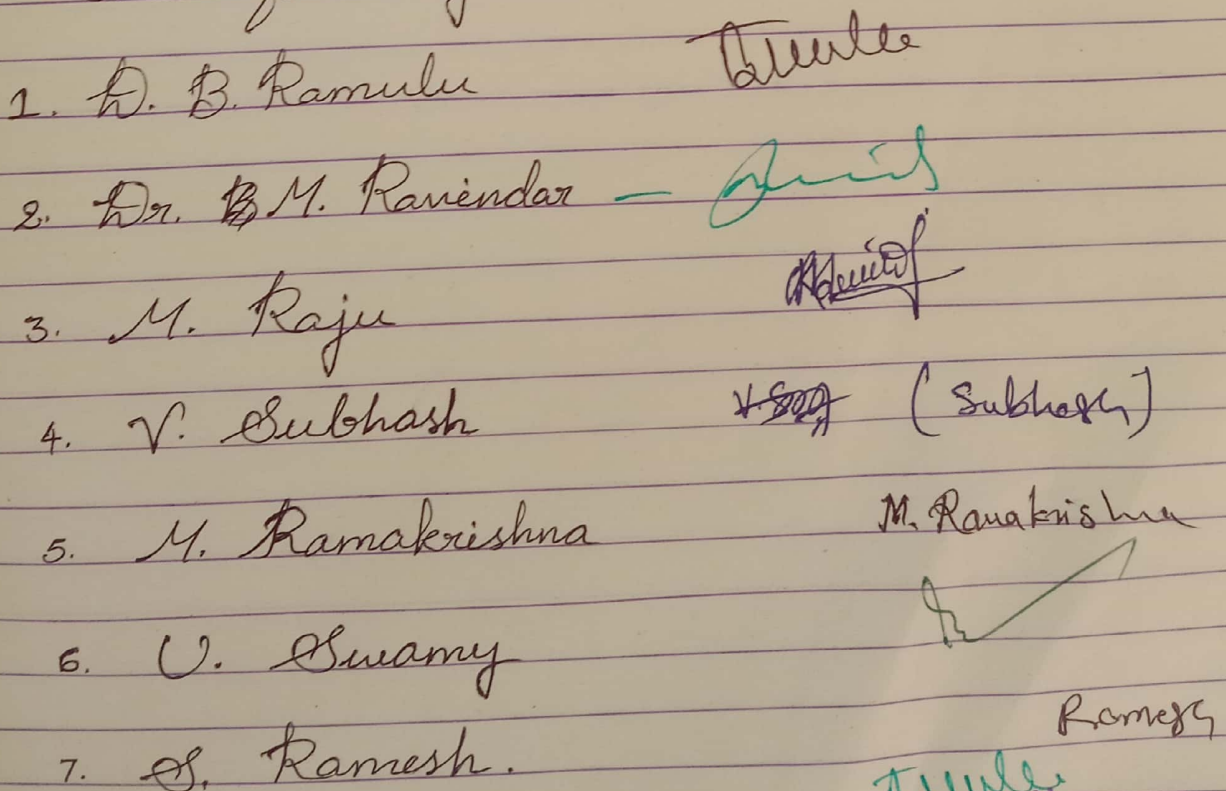 1. D. B. Ramulu
2. Dr. M. Ravindar —
3. M. Raju
4. V. Subhash (Subhash)
5. M. Ramakrishna M. Ramakrishna
6. U. Swamy
7. S. Ramesh. Ramesh